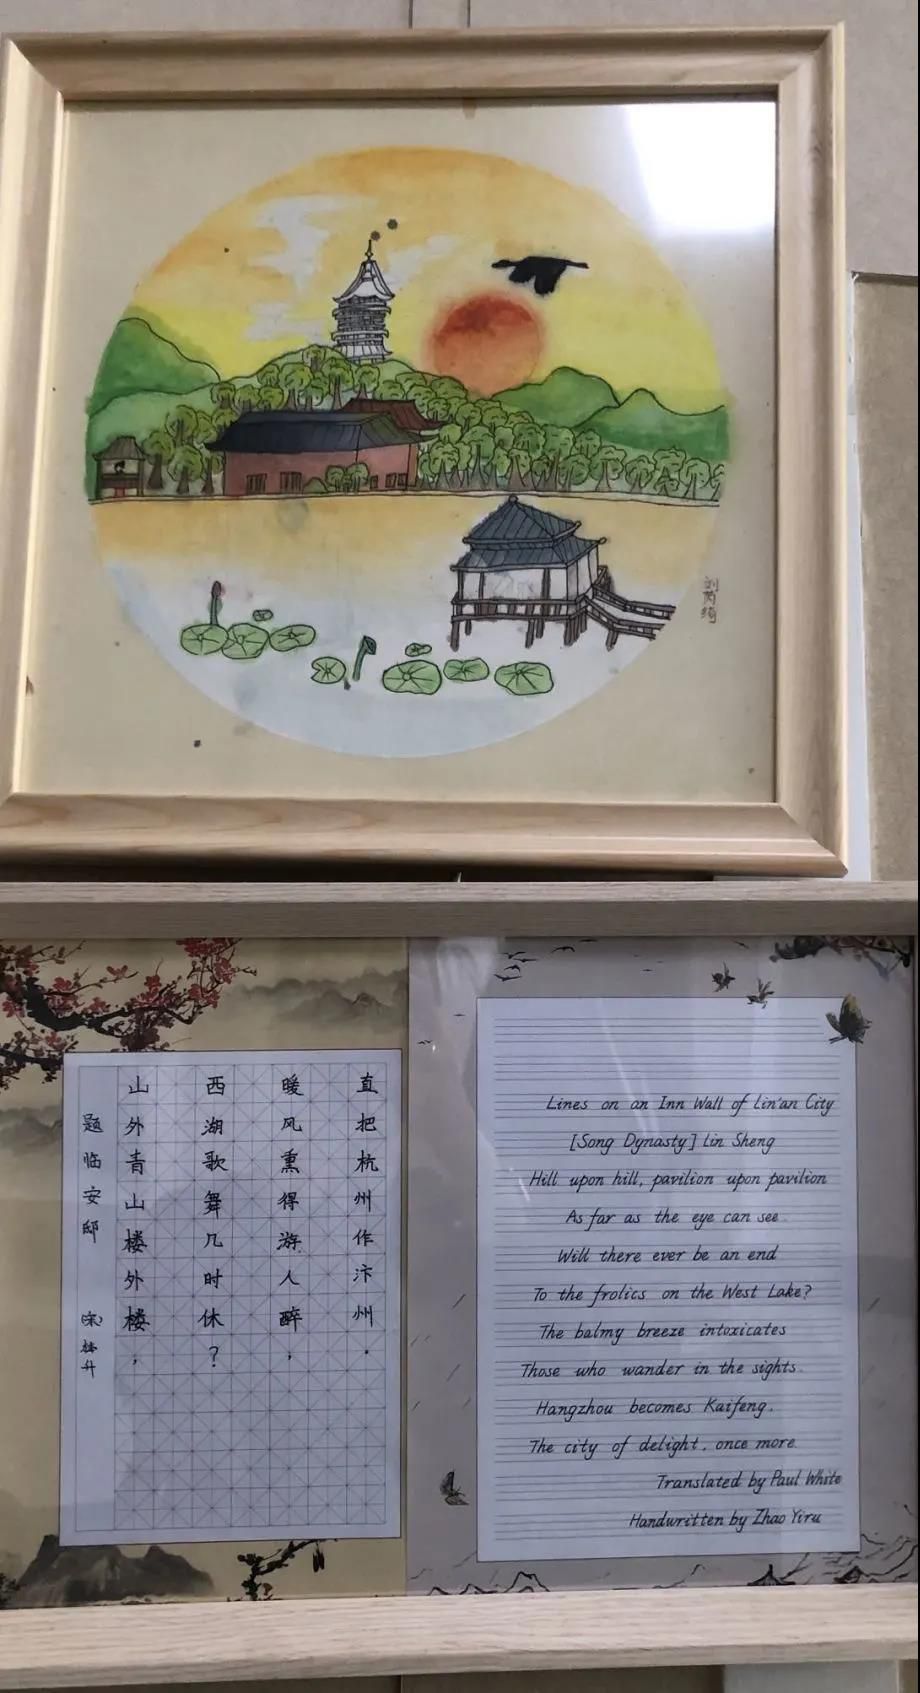 刘芮绮
题临安邸
(宋)林升
山外青山楼外楼,
西湖歌舞几时休?
暖风熏得游人醉,
直把杭州作汴州.
Lines on an Inn Wall of Lin'an City
[Song Dynasty] Lin Sheng
Hill upon hill, pavilion upon pavilion
As far as the eye can see
Will there ever be an end
To the frolics on the West Lake?
The balmy breeze intoxicates
Those who wander in the sights.
Hangzhou becomes Kaifeng,
The city of delight, once more.
Translated by Paul White
Handwritten by Zhao Yiru